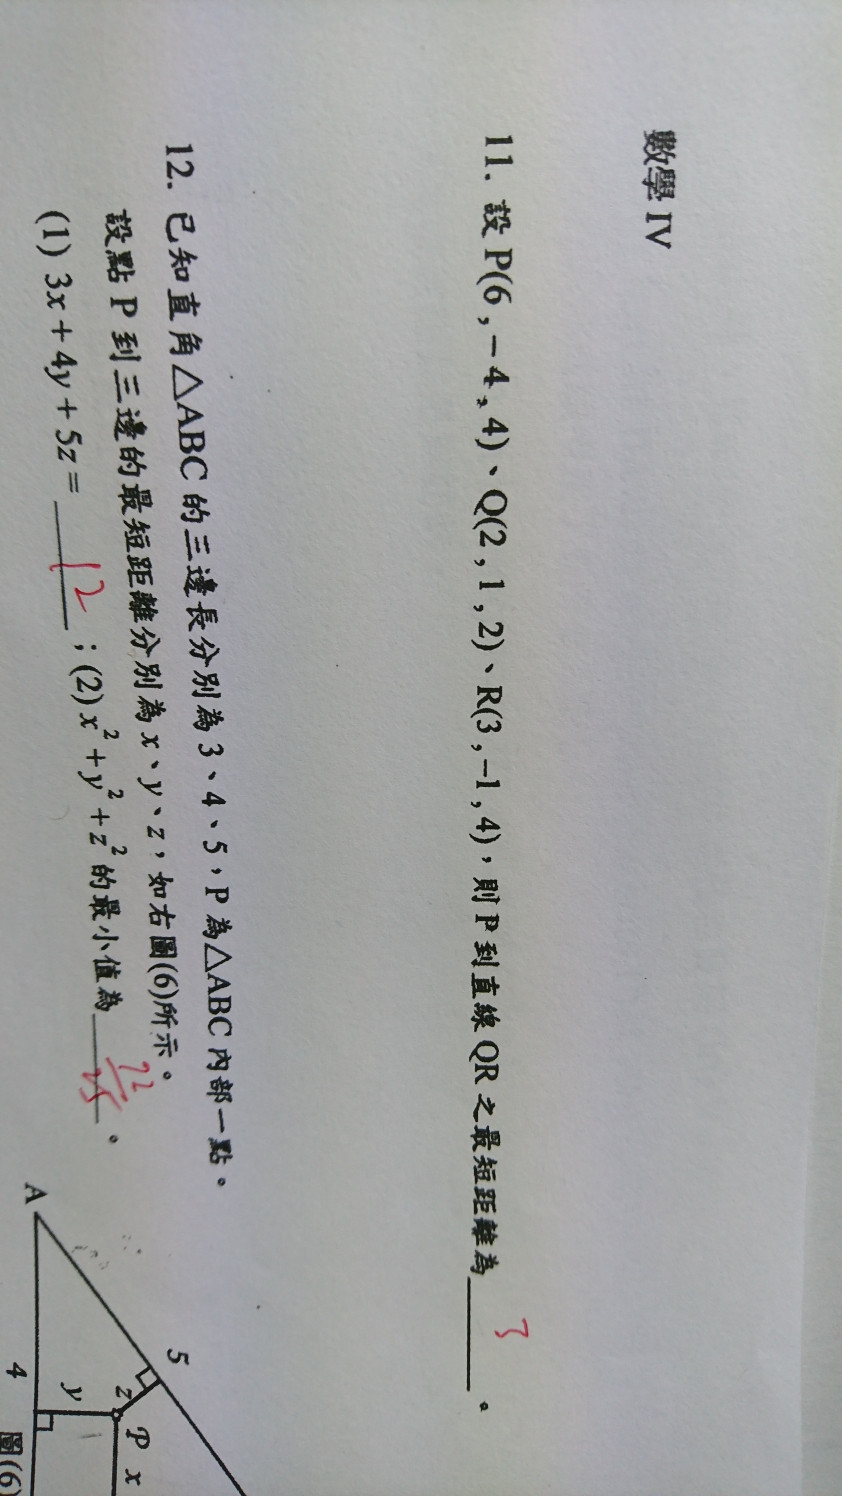 數學 IV
11. 設 P(6,-4,4)、Q(2,1,2)、R(3,-1,4),則 P 到直線 QR 之最短距離為______。
3
12. 已知直角△ABC 的三邊長分別為 3、4、5,P 為△ABC 內部一點。
設點 P 到三邊的最短距離分別為 x、y、z,如右圖(6)所示。
(1) 3x+4y+5z= 12 ;(2) x²+y²+z² 的最小值為______。
A
5
z
P
x
y
4
圖(6)